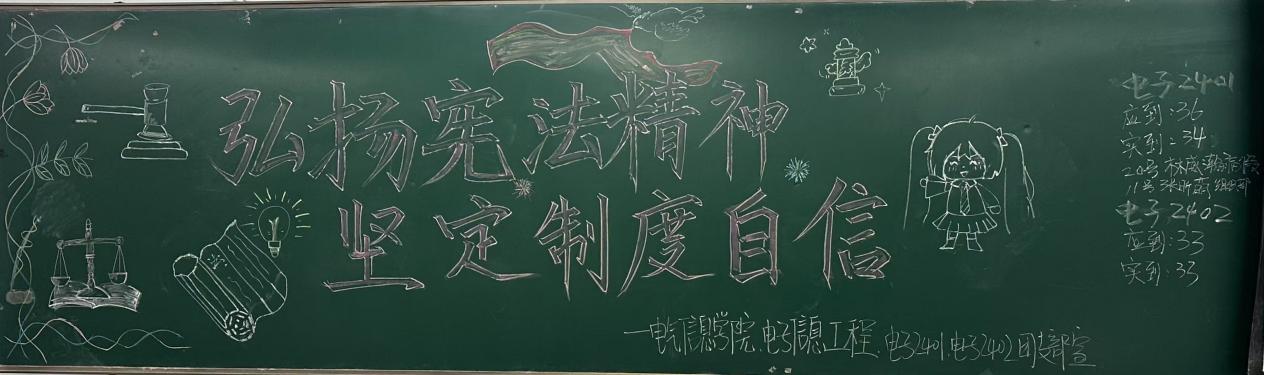 弘扬宪法精神
坚定制度自信
一电气信息学院、电子信息工程、电子2401、电子2402团支部宣
电子2401
应到:36
实到:34
20号 林威 病假
11号 张昕 组织部
电子2402
应到:33
实到:33